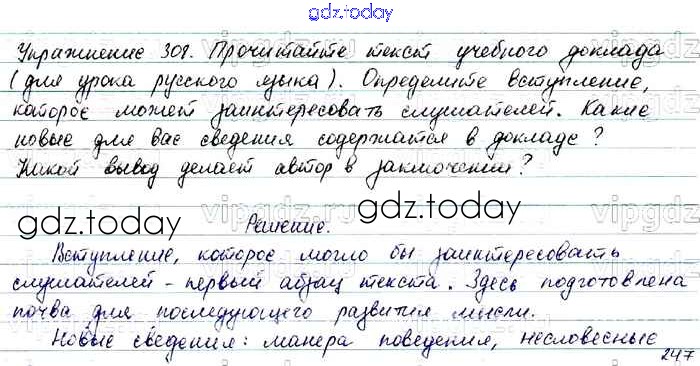 gdz.today
Упражнение 308. Прочитайте текст учебного доклада
(для урока русского языка). Определите вступление,
которое может заинтересовать слушателей. Какие
новые для вас сведения содержатся в докладе?
Какой вывод делает автор в заключении?
gdz.today gdz.today
Решение.
Вступление, которое могло бы заинтересовать
слушателей - первый абзац текста. Здесь подготовлена
почва для последующего развития мысли.
Новые сведения: манера поведения, несловесные
247